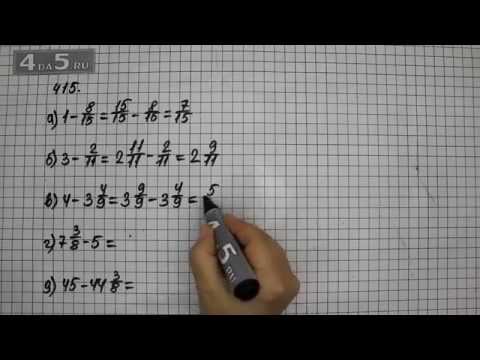 4 да 5 RU
415.
а) 1 - 8/15 = 15/15 - 8/15 = 7/15
б) 3 - 2/11 = 2 11/11 - 2/11 = 2 9/11
в) 4 - 3 4/9 = 3 9/9 - 3 4/9 = 5
г) 7 3/8 - 5 =
д) 45 - 44 3/8 =
4 ДА 5 RU